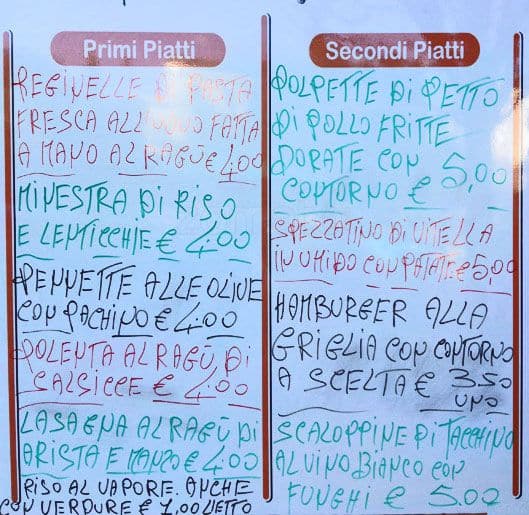 Primi Piatti
REGINELLE DI PASTA
FRESCA ALL'UOVO FATTA
A MANO AL RAGÙ € 4,00
MINESTRA DI RISO
E LENTICCHIE € 4.00
PENNETTE ALLE OLIVE
CON PACHINO € 4.00
POLENTA AL RAGÙ DI
SALSICCE € 4,00
LASAGNA AL RAGÙ DI
ARISTA E MANZO € 4,00
RISO AL VAPORE. ANCHE
CON VERDURE €
Secondi Piatti
POLPETTE DI PETTO
DI POLLO FRITTE
DORATE CON
CONTORNO € 5,00
SPEZZATINO DI VITELLA
IN UMIDO CON PATATE € 5,00
HAMBURGER ALLA
GRIGLIA CON CONTORNO
A SCELTA € 3.50
UNO
SCALOPPINE DI TACCHINO
AL VINO BIANCO CON
FUNGHI € 5.00